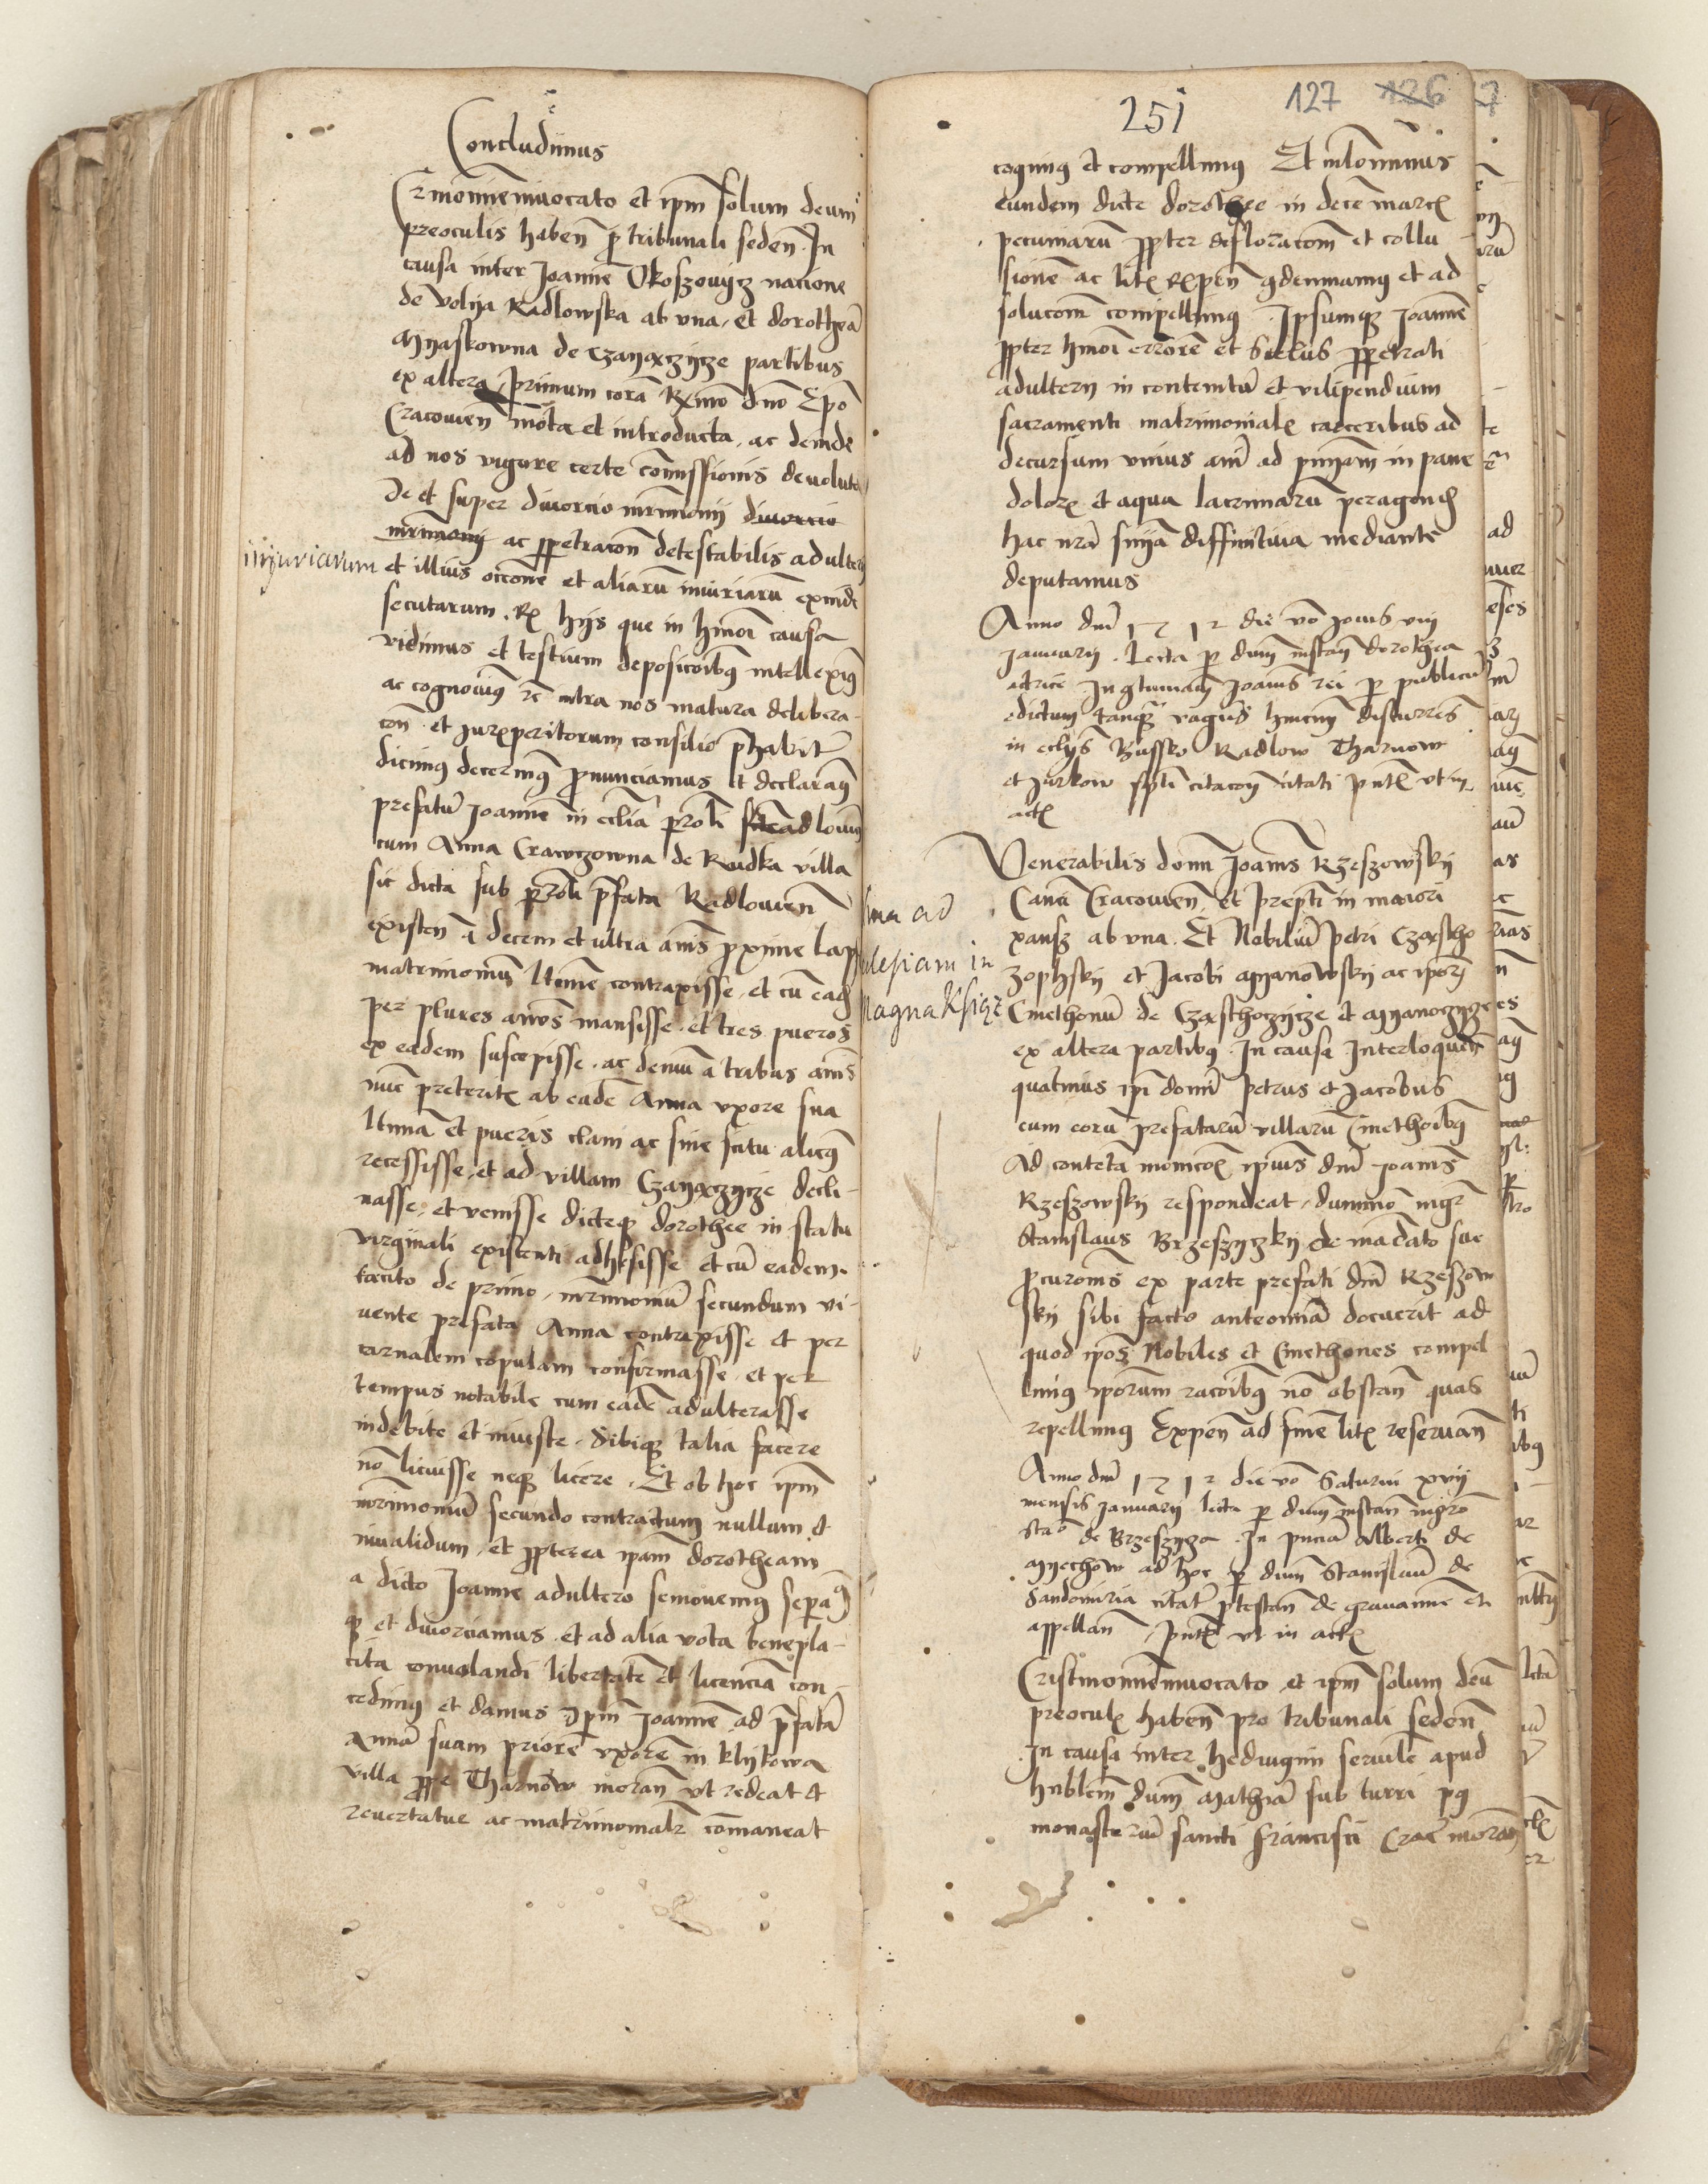 Concludimus
Crinomineinuocato et ipm solum deum
preoculis haben p tribunali seden In
causa inter Joannē Vkoszouycz nacione
de Volya Radlowska ab vna et dorotheā
Myaskowna de Czayączycze partibus
ex altera primum corā Rximo dno Epo
Cracouien mota et introducta ac deinde
ad nos vigore certe comissionis deuoluta
de et super diuorcio mrimonij diuorcio
mrimonij ac ppetracon detestabilis adulterij
injuriarum et illius occone et aliarū iniuriarū exinde
secutarum Ex hijs que in hmoi causa
vidimus et testium deposicoibq intelleximq
ac cognouimq re intra nos matura delibera-
con et jurexperitorum consilio phabit
dicimq decernimq pronunciamus et declaramq
prefatū Joannē in ecclia parroli Radlouien
cum Anna Crawczowna de Rudka villa
sic dicta sub parroli pfata Radlouien
existen a decem et ultra annis proxime laps
matrimoniū ltime contraxisse et cū eadē
per plures annos mansisse et tres pueros
ex eadem suscepisse ac demū a tribus annis
nūc preteritis ab eadē Anna vxore sua
ltima et pueris clam ac sine scitu alicuiq
recessisse et ad villam Czayączycze decli-
nasse et venisse dicteq dorothee in statu
virginali existenti adhesisse et cū eadem
tacito de primo mrimoniū secundum vi-
uente prefata Anna contraxisse et per
carnalem copulam confirmasse et per
tempus notabile cum eadē adulterasse
indebite et iniuste Sibiq talia facere
nō licuisse neq licere Et ob hoc ipm
mrimoniū secundo contractum nullum et
inualidum et ppterea ipam dorotheam
a dicto Joanne adultero semouemq separamq
q et diuorciamus et ad alia vota benepla-
cita conuolandi libertatē et licenciā con-
cedimq et damus Ipm Joannē ad pfatā
Annā suam priorē vxorē in klykowa
villa ppe Tharnow moran vt redeat et
reuertatur ac matrimonialr comaneat
251 127 126
cogimq et compellimq Et nichilominus
eundem dicte dorothee in decē marcis
pecuniarū ppter defloracom et collu
sionē ac litis expen gdemnamq et ad
solucom compellimq Ipsumq Joannē
ppter hmoi errorē et scelus ppetrati
adulterij in contemtū et vilipendium
sacramenti matrimonialis carceribus ad
decursum vnius anni ad pniam in pane
doloris et aqua lacrimarū peragend
hac nra snia diffinitiua mediante
deputamus
Anno dni 1512 die vo Jouis viij
Januarij Lecta p dnm instan dorothea
actrice In gtumaciā Joannis rei p publicū
edictum tanq vagus hincinde discurres
in eclijs Bussko Radlow Tharnow
et Jurkow spli citacon citati pntis vt in
actis
Venerabilis domi Joannis Rzeszowskij
Canci Cracouien et prepti in maiori
xansz ab vna Et Nobiliū petri Czascho
zophskij et Jacobi Myanowskij ac iporz
Cmethonū de Czasthoczycze et Myanoczycze
ex altera partibq In causa Interloquen
quatinus ipi domi petrus et Jacobus
cum eorū prefatarū villarū Cmethoibq
Ad contenta monicois ipius dni Joannis
Rzeszowskij respondeat dummō mgr
Stanislaus Brzeszyczky de mādato sue
procuronis ex parte prefati dni Rzeszow
skij sibi facto anteoniā docuerit ad
quod ipos Nobiles et Cmethones compel
limq iporum racoibq nō obstan quas
repellimq Expen ad finē litis reseruan
Anno dni 1512 die vo Saturni xvij
mensis Januarij lecta p dnm instan mgro
Stao de Brzeszyza In pncia Alberti de
Myechow ad hoc p dnm Stanislaū de
Sandomiria citat ptestan de grauamine et
appellan pntis vt in actis
Cristinomineinuocato et ipm solum deū
preoculis haben pro tribunali seden
In causa inter hedwigim seruilē apud
hnblem dnm Mathiā sub turri pq
monasteriū sancti francisci Crac moran